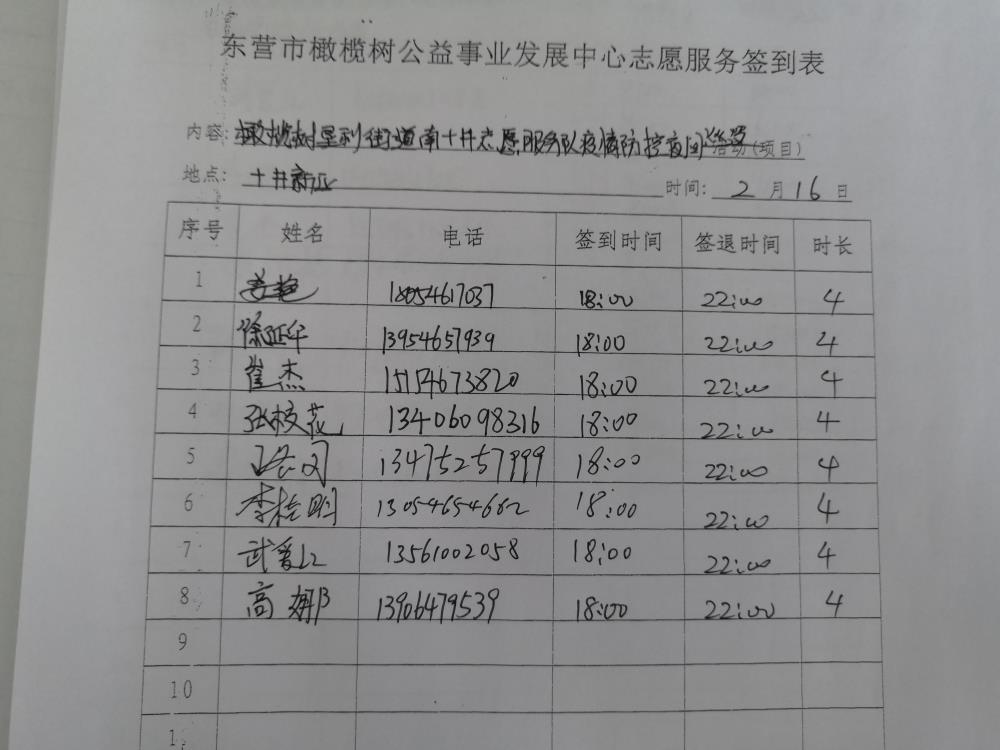 东营市橄榄树公益事业发展中心志愿服务签到表
内容：橄榄树垦利街道南十井志愿服务队疫情防控夜间 活动（项目）
地点：十井新 时间：2月16日
序号 姓名 电话 签到时间 签退时间 时长
1 18054617037 18:00 22:00 4
2 徐延华 13954657939 18:00 22:00 4
3 崔杰 15154673820 18:00 22:00 4
4 张校花 13406098316 18:00 22:00 4
5 13475257999 18:00 22:00 4
6 李桂明 13054654662 18:00 22:00 4
7 武爱江 13561002058 18:00 22:00 4
8 高娜 13906479539 18:00 22:00 4
9
10